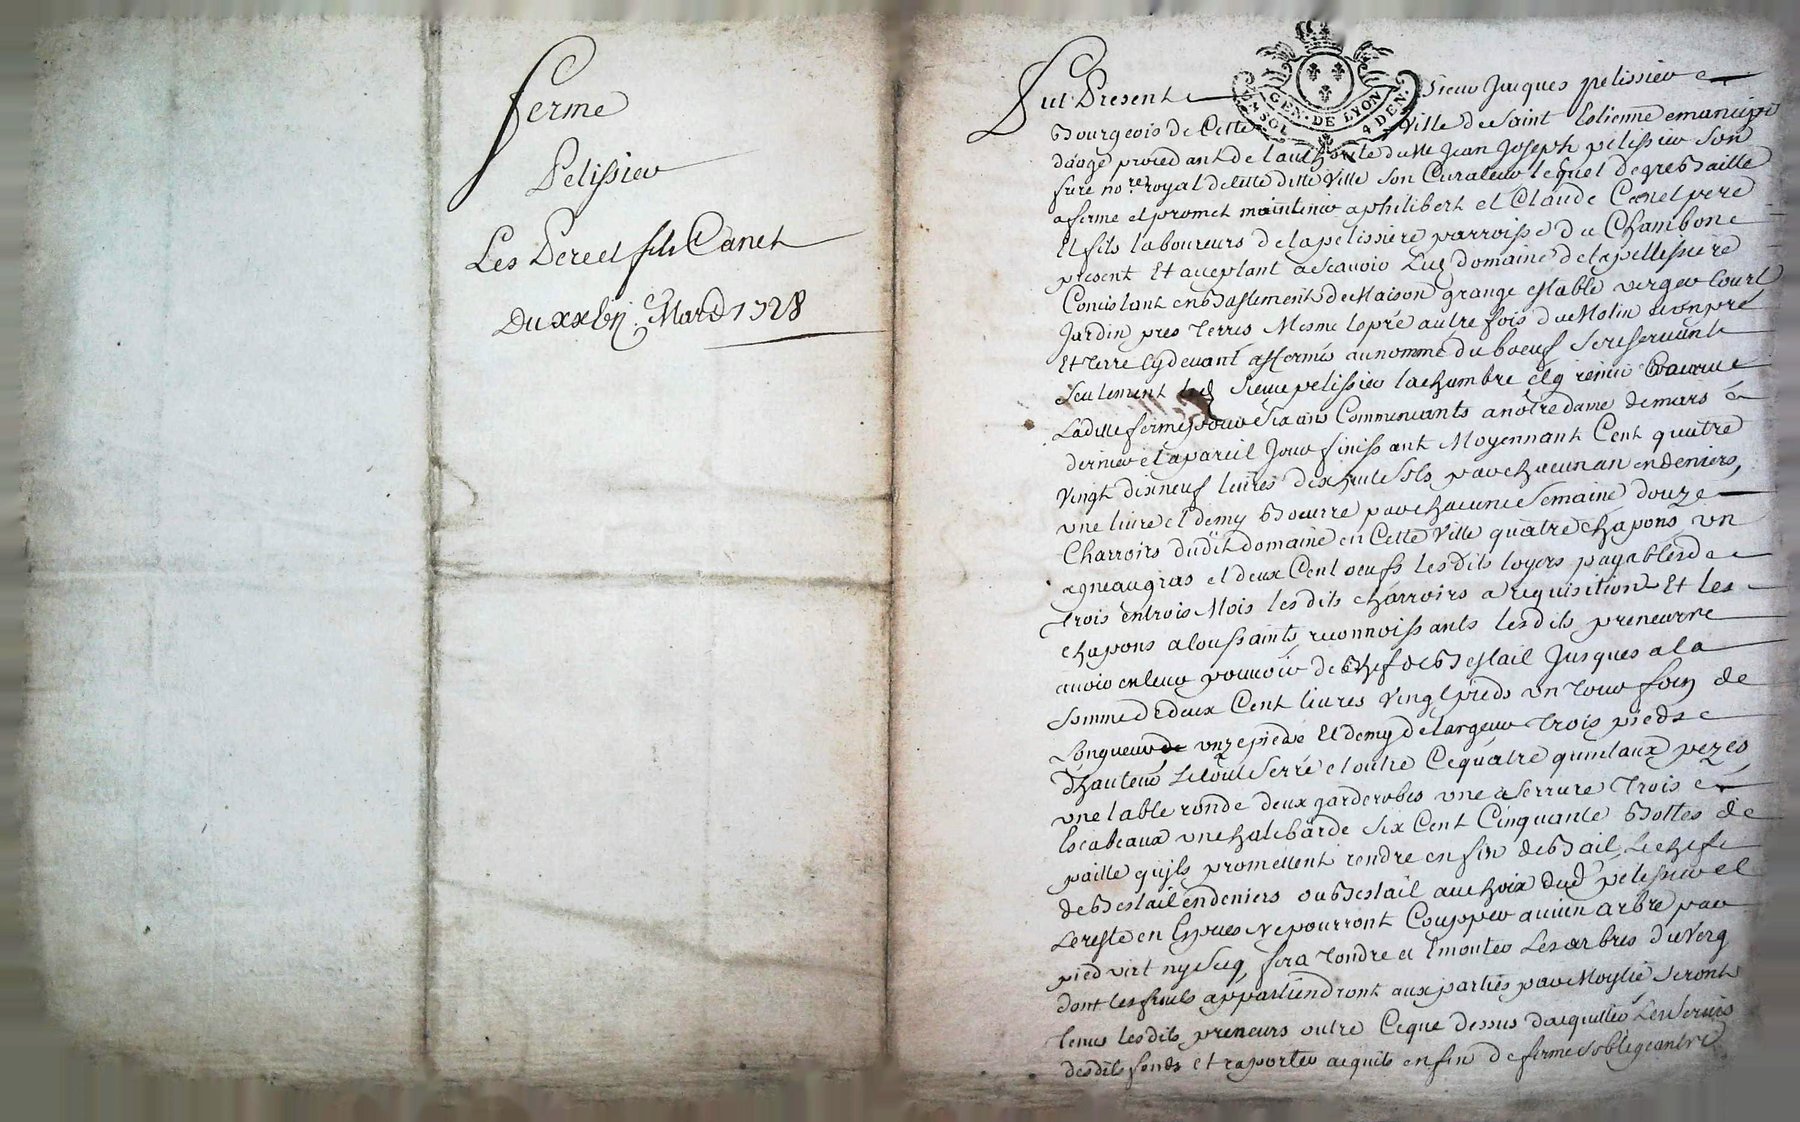 ferme
Pelissier
Les Pere et fils Canet
Du xxbij e Mars 1728
GEN. DE LYON
SOL 4 DEN.
fut Present Sieur Jacques pelissier
Bourgeois de Cette Ville de Saint Estienne emancipé
daage procedant de lauthorite de Me Jean Joseph pelissier son
frere nore royal de cette ditte Ville son Curateur lequel de gre Baille
a ferme et promet maintenir a philibert et Claude Canet pere
Et fils laboureurs de la pelissiere parroisse du Chambon
present Et acceptant a scavoir Luy domaine de la pellissiere
Concistant en Bastiments de Maison grange estable verger Court
Jardin pres Terres Mesme le pré autre fois du Molin un pré
Et Terre cy devant affermés au nommé du boeuf se reservant
seulement led Sieur pelissier la chambre
Laditte ferme pour six ans Commencants a notre dame de mars
dernier et a pareil Jour finissant Moyennant Cent quatre
vingt dixneuf livres dixhuit sols par chacun an en deniers,
une livre et demy Beurre par chacune semaine douze
Charroirs dudit domaine en Cette Ville quatre chapons un
agneau gras et deux Cent oeufs les dits loyers payables de
trois en trois Mois les dits charroirs a requisition Et les
chapons a toussaints reconnoissants les dits preneurs
avoir en leur pouvoir de Chef de Bestail Jusques a la
somme de deux Cent livres vingt pieds un tour foin de
Longueur de unze pieds Et demy de largeur Trois pieds
dhauteur Le tout serré et outre Ce quatre quintaux pezes
une table ronde deux garderobes une a serrure Trois
Escabeaux une halebarde six Cent Cinquante Bottes de
paille quils promettent rendre en fin de Bail Le chef
de Bestail en deniers ou Bestail au choix dud pelissier et
Le reste en Espces Ne pourront Coupper aucun arbre par
pied vert ny secq, fera Tondre et Emonter Les arbres du Verg
dont les fruits appartiendront aux parties par Moytié seront
tenus les dits preneurs outre Ce que dessus dacquitter Les servis
desdits fonds et raporter acquits en fin de ferme